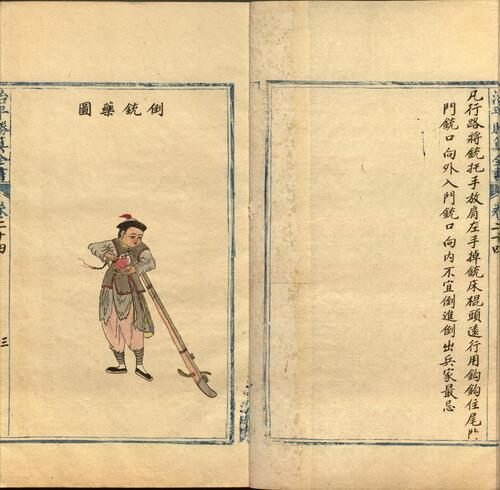 凡行路將銃托手放肩左手掉銃床棍頭遠行用鈎鈎住尾門出
門銃口向外入門銃口向內不宜倒進倒出兵家最忌
倒銃藥圖
治平勝算全書
卷二十四
三